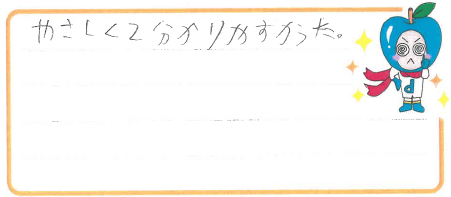 やさしくて分かりやすかった。
d